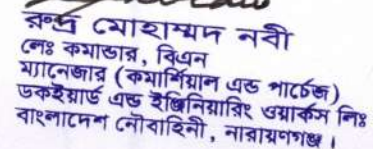 রুদ্র মোহাম্মদ নবী
লেঃ কমান্ডার, বিএন
ম্যানেজার (কমার্শিয়াল এন্ড পার্চেজ)
ডকইয়ার্ড এন্ড ইঞ্জিনিয়ারিং ওয়ার্কস লিঃ
বাংলাদেশ নৌবাহিনী, নারায়ণগঞ্জ।